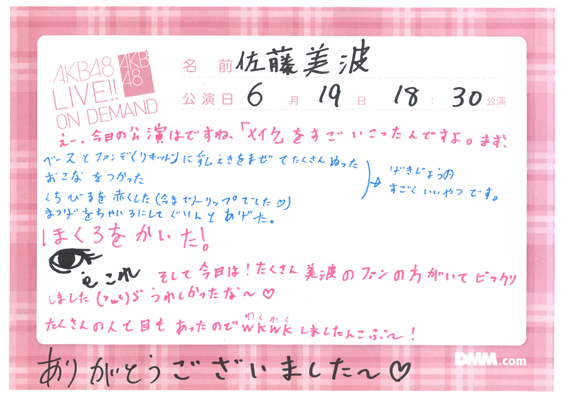 AKB48
LIVE!!
ON DEMAND
AKB
48
名 前 佐藤美波
公演日 6 月 19 日 18 : 30 公演
えー、今日の公演はですね、「メイクをすごいこったんですよ。まず、
ベースとファンデ(リキッド)に乳えきをまぜてたくさんぬった
おこなをつかった
くちびるを赤くした(今までノーリップでした♡)
まつげをちゃいろにしてぐいんとあげた。
げきじょう用
すごくいいやつです。
ほくろをかいた!
これ
そして今日は!たくさん美波のファンの方がいてビックリ
しました(>ω<)うれしかったな〜♡
たくさんの人と目もあったのでwkwkしましたんこぶ〜!
わくわく
ありがとうございました〜♡
DMM.com